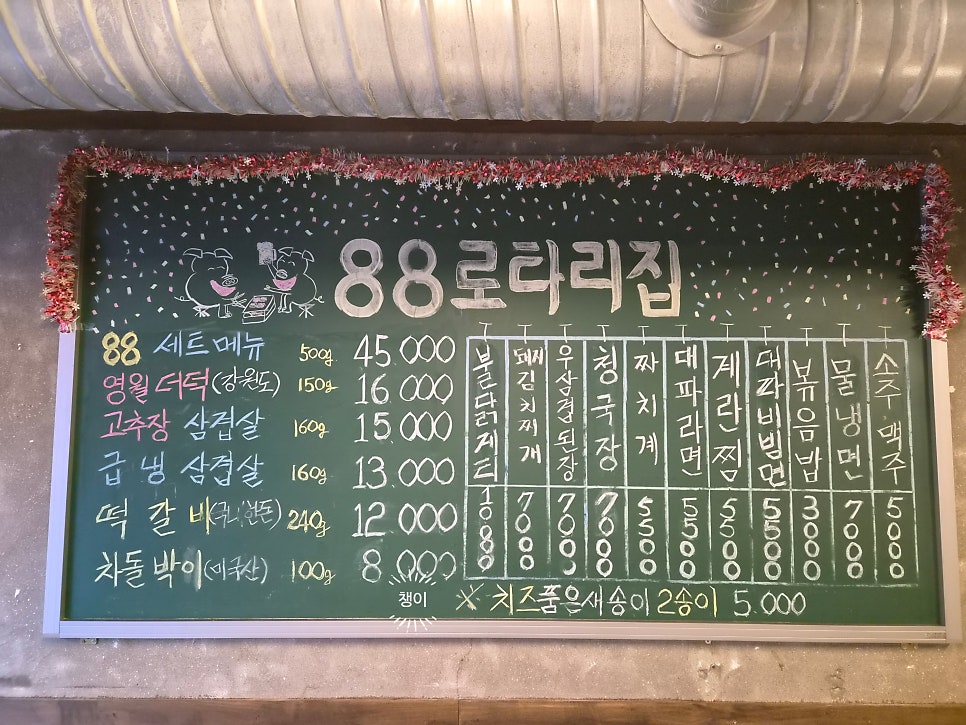 88 로타리집
88 세트메뉴 500g 45.000
영월 더덕(강원도) 150g 16.000
고추장 삼겹살 160g 15.000
급냉 삼겹살 160g 13.000
떡갈비(국내한돈) 240g 12.000
차돌박이(미국산) 100g 8.000
10000
돼지김치찌개 7000
우삼겹된장 7000
청국장 7000
짜치계 5500
대파라면 5500
계란찜 5500
대파비빔면 5500
볶음밥 3000
물냉면 7000
소주.맥주 5000
※ 치즈품은새송이 2송이 5.000
챙이